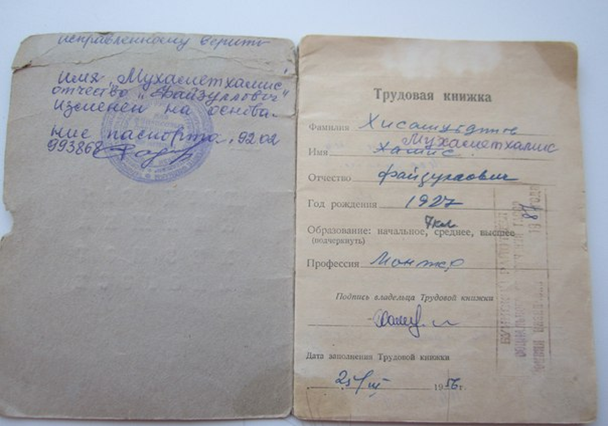 исправленному верить
имя „Мухаметхамис"
отчество „Файзуллович"
Изменен на основа-
ние паспорта, 92 02
993868
Трудовая книжка
Фамилия
Мухаметхамис
Имя Хамис
Отчество Файзуллович
Год рождения 1927
7 кл.
Образование: начальное, среднее, высшее
(подчеркнуть)
Профессия Монтер
Подпись владельца Трудовой книжки
Дата заполнения Трудовой книжки
1956 г.